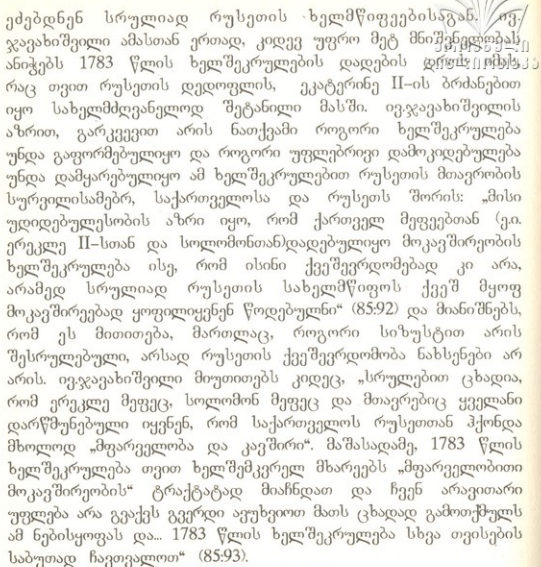 ეძებდნენ სრულიად რუსეთის ხელმწიფეებისაგან. ივ.
ჯავახიშვილი ამასთან ერთად, კიდევ უფრო მეტ მნიშვნელობას
ანიჭებს 1783 წლის ხელშეკრულების დადების დროს იმას,
რაც თვით რუსეთის დედოფლის, ეკატერინე II–ის ბრძანებით
იყო სახელმძღვანელოდ შეტანილი მასში. ივ.ჯავახიშვილის
აზრით, გარკვევით არის ნათქვამი როგორი ხელშეკრულება
უნდა გაფორმებულიყო და როგორი უფლებრივი დამოკიდებულება
უნდა დამყარებულიყო ამ ხელშეკრულებით რუსეთის მთავრობის
სურვილისამებრ, საქართველოსა და რუსეთს შორის: „მისი
უდიდებულესობის აზრი იყო, რომ ქართველ მეფეებთან (ე.ი.
ერეკლე II–სთან და სოლომონთან)დადებულიყო მოკავშირეობის
ხელშეკრულება ისე, რომ ისინი ქვეშევრდომებად კი არა,
არამედ სრულიად რუსეთის სახელმწიფოს ქვეშ მყოფ
მოკავშირეებად ყოფილიყვნენ წოდებულნი“ (85:92) და მიანიშნებს,
რომ ეს მითითება, მართლაც, როგორი სიზუსტით არის
შესრულებული, არსად რუსეთის ქვეშევრდომობა ნახსენები არ
არის. ივ.ჯავახიშვილი მიუთითებს კიდეც, „სრულებით ცხადია,
რომ ერეკლე მეფეც, სოლომონ მეფეც და მთავრებიც ყველანი
დარწმუნებული იყვნენ, რომ საქართველოს რუსეთთან ჰქონდა
მხოლოდ „მფარველობა და კავშირი“. მაშასადამე, 1783 წლის
ხელშეკრულება თვით ხელშემკვრელ მხარეებს „მფარველობითი
მოკავშირეობის“ ტრაქტატად მიაჩნდათ და ჩვენ არავითარი
უფლება არა გვაქვს გვერდი ავუხვიოთ მათს ცხადად გამოთქმულს
ამ ნებისყოფას და... 1783 წლის ხელშეკრულება სხვა თვისების
საბუთად ჩავთვალოთ“ (85:93).